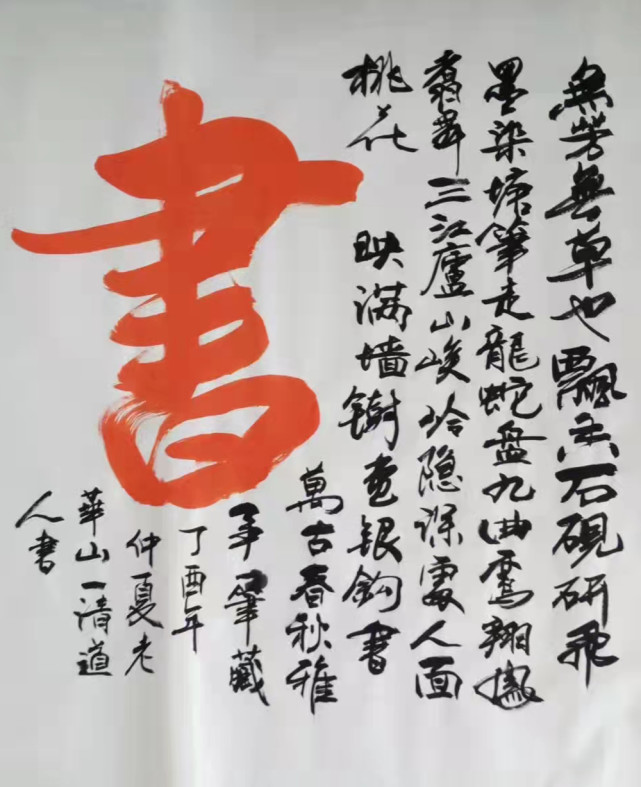 無芳無草也飄香石硯研飛
墨染塘筆走龍蛇盤九曲鸞翔鳳
翥舞三江廬山峻岭隐深處人面
桃花 映满墙鐵画银鈎書
萬古春秋雅
事一筆藏
書
丁酉年
仲夏老
華山一清道
人書